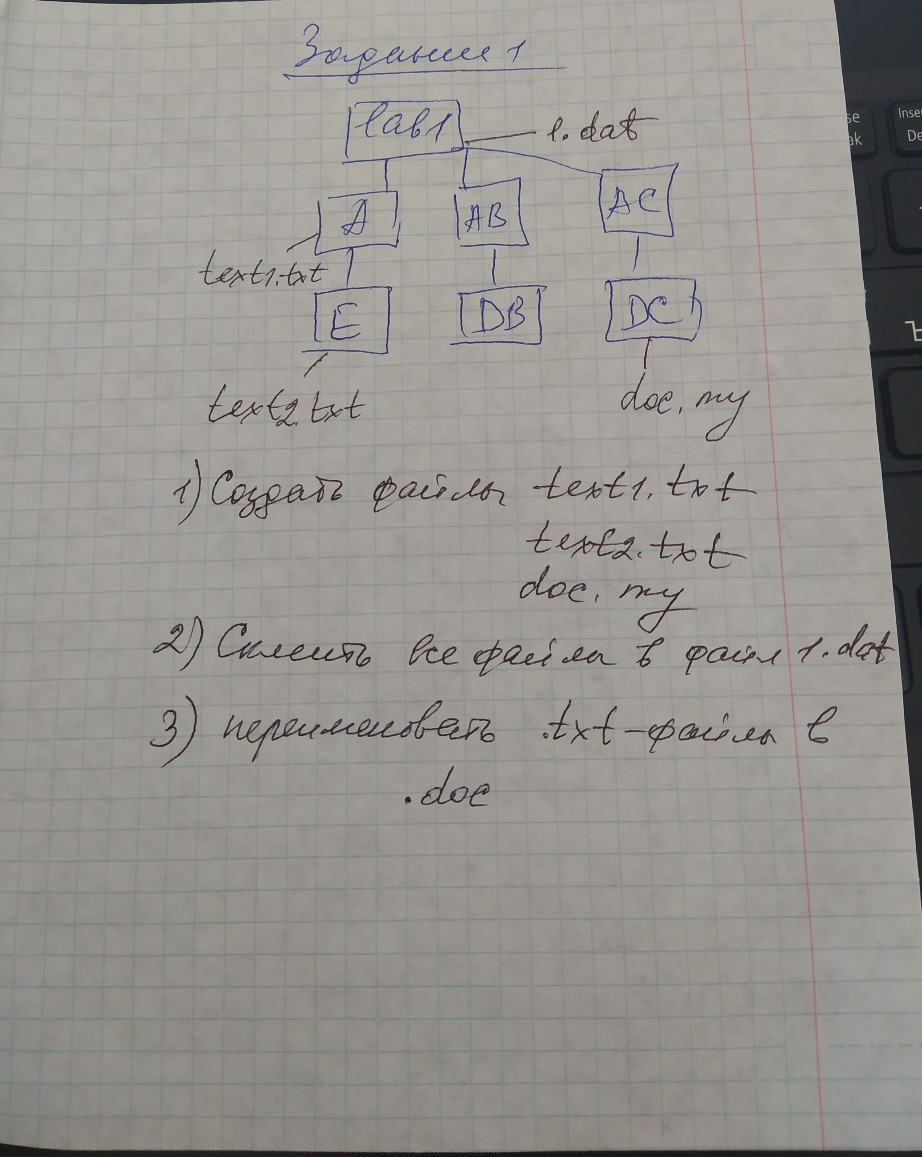 Задание 1
lab1
1.dat
A
AB
AC
text1.txt
E
DB
DC
text2.txt
doc.my
1) Создать файлы text1.txt
text2.txt
doc.my
2) Склеить все файлы в файл 1.dat
3) переименовать .txt-файлы в
.doc